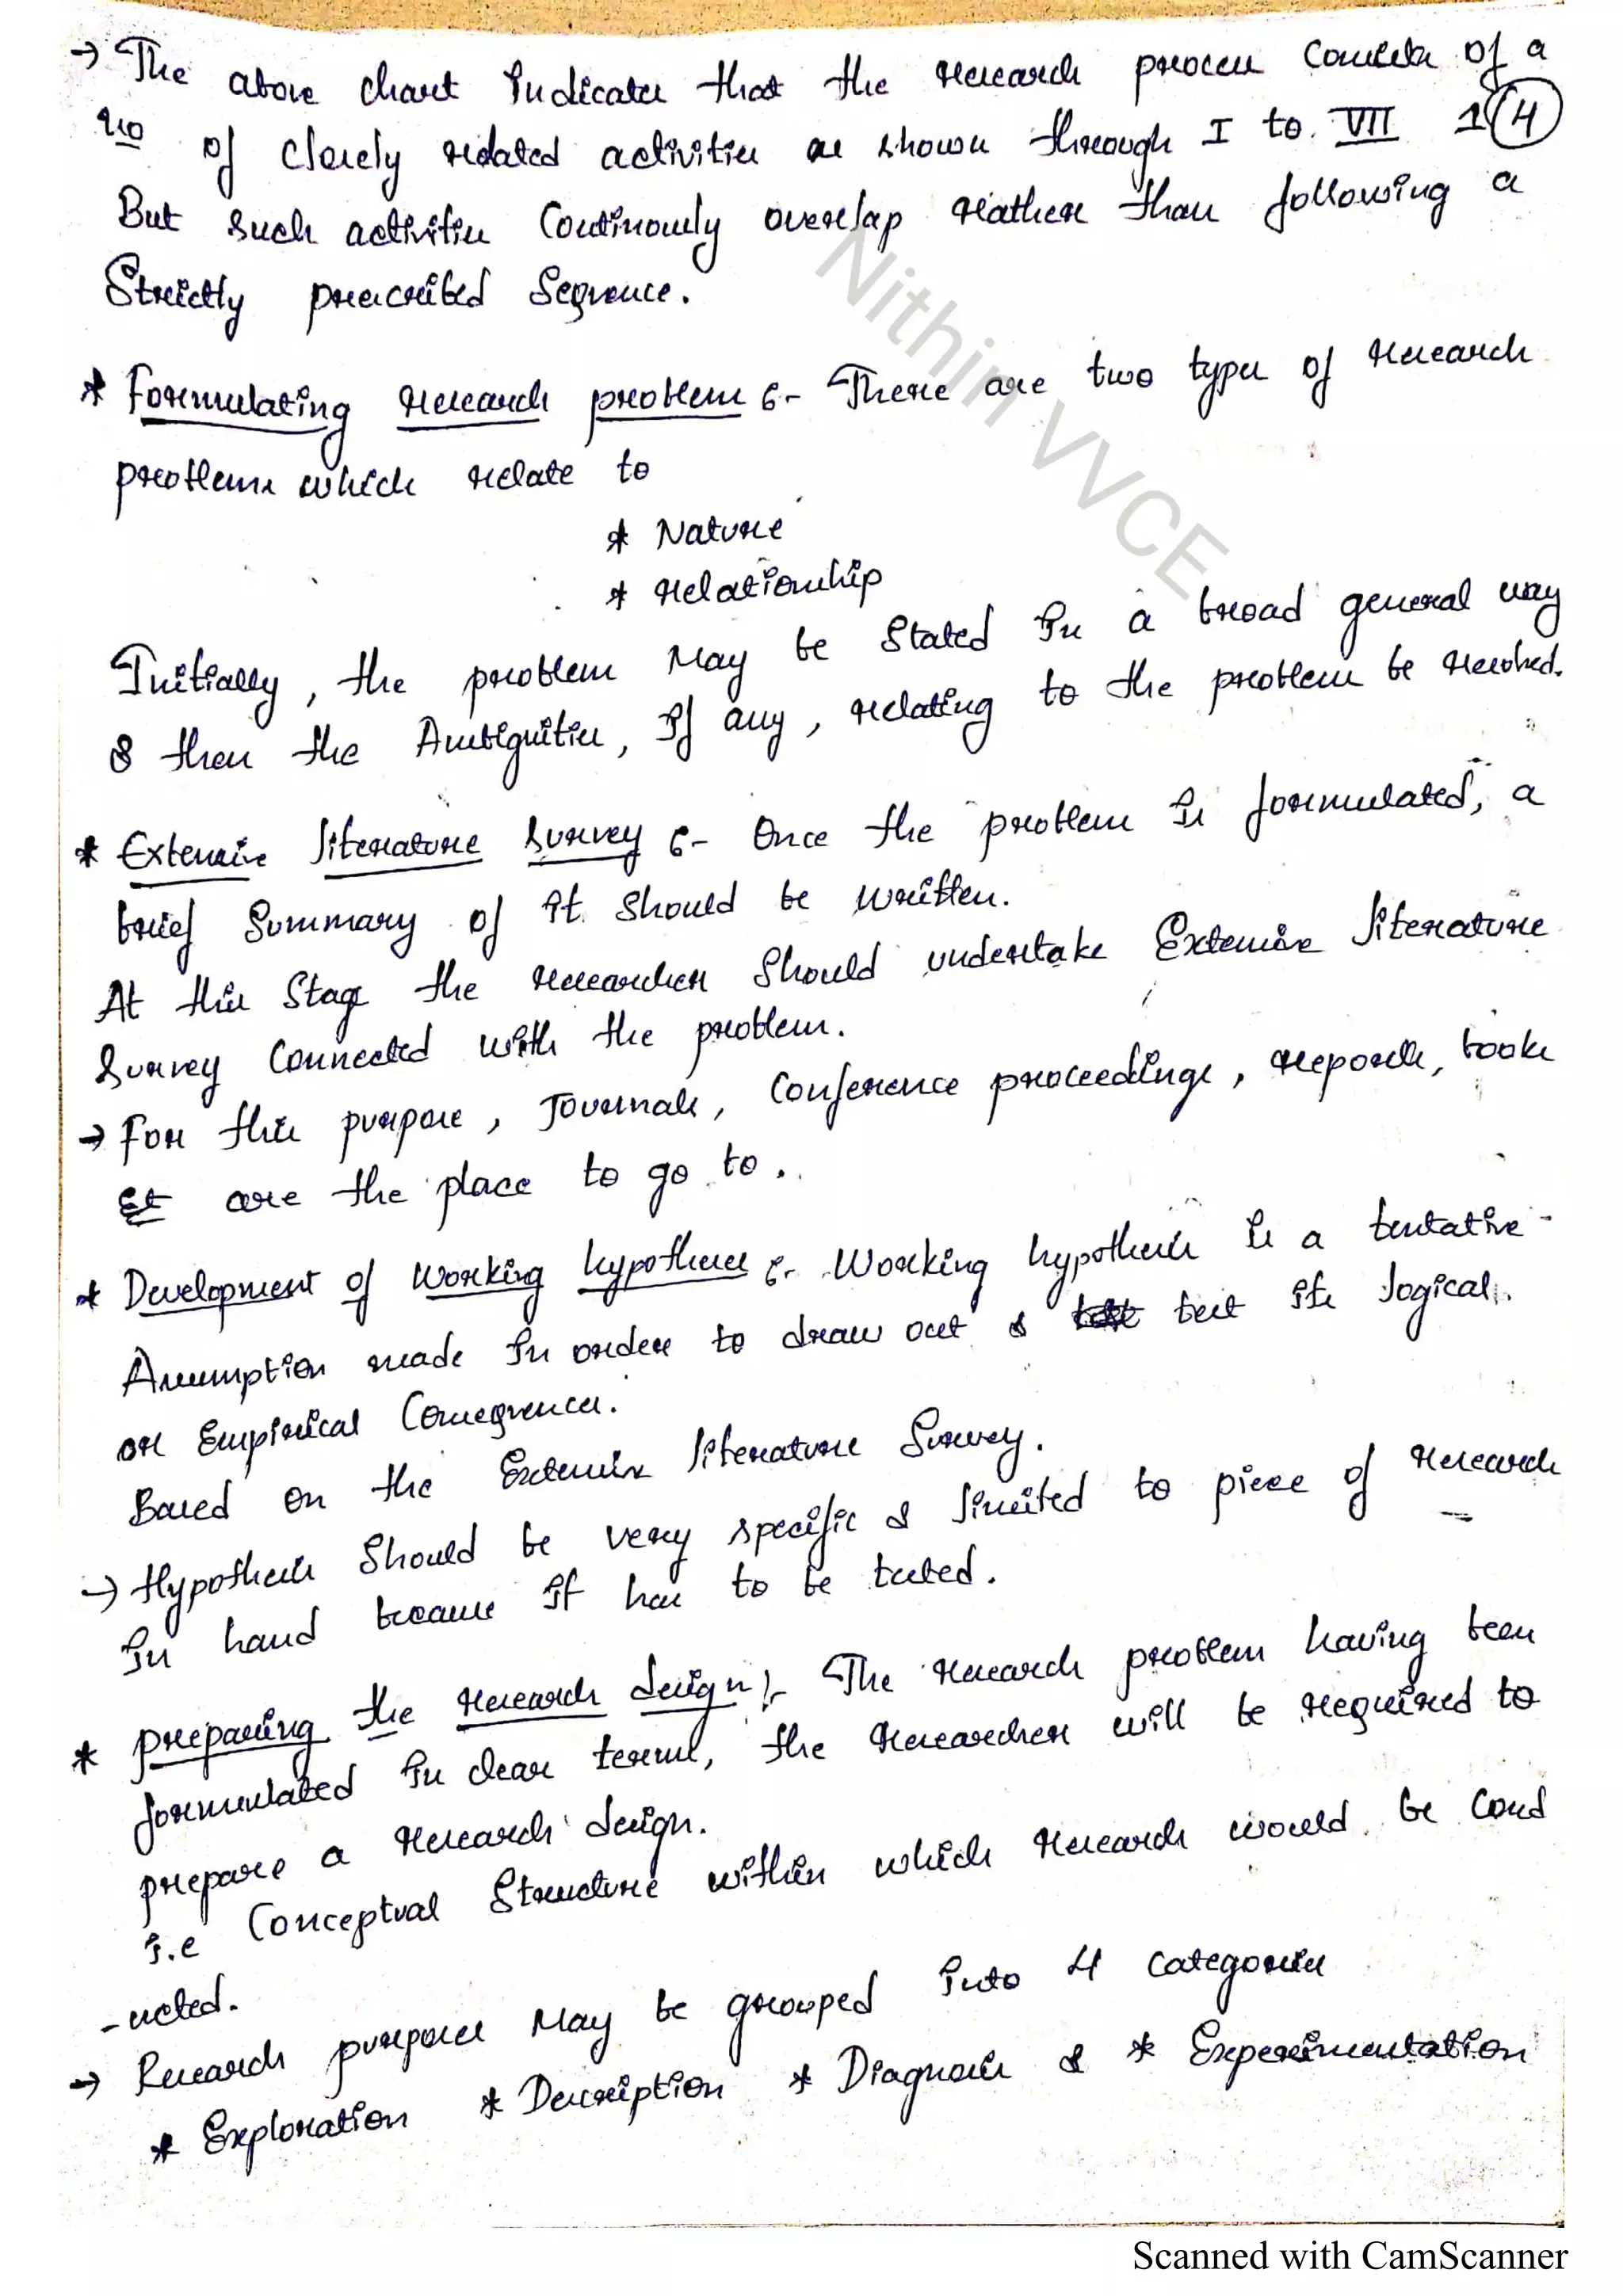 → The above chart indicates that the research process consists of a
no of closely related activities as shown through I to VII 1 4
But such activities Continously overlap rather than following a
Strictly prescribed Sequence.
* Formulating research problem :- There are two types of research
problems which relate to
* Nature
* relationship
Initially, the problem May be Stated in a broad general way
& then the Ambiguities, if any, relating to the problem be resolved.
* Extensive literature survey :- Once the problem is formulated, a
brief Summary of it should be written.
At this Stage the researcher Should undertake Extensive literature
Survey Connected with the problem.
→ For this purpose, Journals, Conference proceedings, reports, books
etc are the place to go to.
* Development of Working hypotheses :- Working hypothesis is a tentative
Assumption made in order to draw out & test its logical
or Empirical Consequences.
Based on the Extensive literature Survey.
→ Hypothesis Should be very specific & limited to piece of research
in hand because it has to be tested.
* preparing the research design :- The research problem having been
formulated in clear terms, the researcher will be required to
prepare a research design.
i.e Conceptual Structure within which research would be cond
-ucted.
→ Research purposes May be grouped into 4 categories
* Exploration * Description * Diagnosis & * Experimentation
Nithin VVCE
Scanned with CamScanner